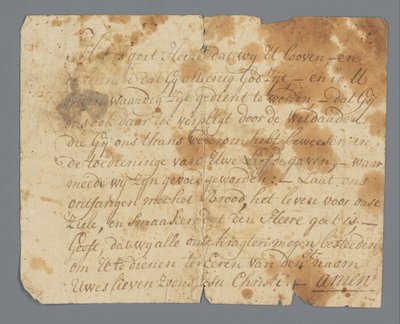 Het is goet Heere dat wy U Looven - en
dat Gy alleenig God Zyt - en in U
waardig Zyt gedient te worden, - dat Gy
ons ook daar toe verpligt door de Weldaaden
die Gy ons thans wederom hebt beweesen in
de toedieninge van Uwe Liefdegaven, - waar
meede wy Zyn gevoed geworden: - Laat ons
ontfangen met het Brood, het leven voor onse
Ziele, en Smaaken dat den Heere goet is -
Geeft, dat wy alle onse kragten mogen besteeden
om U te dienen ter Eeren van den naam
Uwes lieven Zoons Jesu Christi. - amen